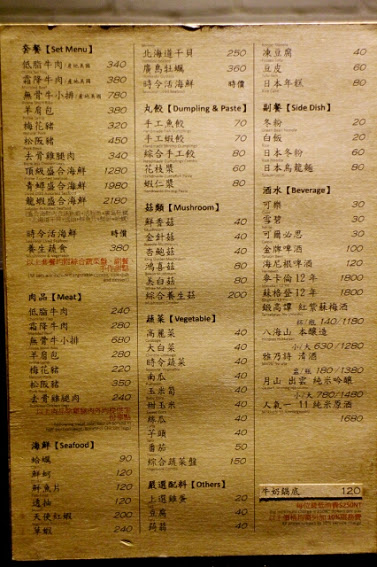 套餐【Set Menu】
低脂牛肉 340
霜降牛肉 380
無骨牛小排 780
羊肩包 380
梅花豬 320
松阪豬 450
去骨雞腿肉 340
頂級盛合海鮮 1280
青蟳盛合海鮮 1980
龍蝦盛合海鮮 2180
時令活海鮮 時價
養生蔬食 380
肉品【Meat】
低脂牛肉 240
霜降牛肉 280
無骨牛小排 680
羊肩包 280
梅花豬 220
松阪豬 350
去骨雞腿肉 240
海鮮【Seafood】
蛤蠣 90
鮮蚵
鮮魚片
透抽
天使紅蝦 200
草蝦 240
北海道干貝 250
廣島牡蠣 360
時令活海鮮 時價
丸餃【Dumpling & Paste】
手工魚餃 70
手工蝦餃 70
綜合手工餃 80
花枝漿 80
蝦仁漿 80
菇類【Mushroom】
鮮香菇 40
金針菇 40
杏鮑菇 40
鴻喜菇 80
美白菇 80
綜合養生菇 200
蔬菜【Vegetable】
高麗菜 40
大白菜 40
時令蔬菜 40
南瓜 40
玉米筍 40
甜玉米 40
絲瓜 40
芋頭 40
番茄 50
綜合蔬菜盤 150
嚴選配料【Others】
上選雞蛋 20
豆腐 40
蒟蒻 40
凍豆腐 40
豆皮 60
日本年糕 80
副餐【Side Dish】
冬粉 20
白飯 20
日本冬粉 60
日本烏龍麵 80
酒水【Beverage】
可樂 30
雪碧 30
可爾必思 30
金牌啤酒 100
海尼根啤酒 120
麥卡倫12年 1800
蘇格登12年 1800
緞高譚 紅紫蘇梅酒
杯/瓶 140/1180
八海山 本釀造
小/大 630/1280
雅乃詩 清酒
180/1380
月山 出雲 純米吟釀
小/大 780/1480
人氣一 11 純米原酒
1680
牛奶鍋底 120
每位最低消費$250NT